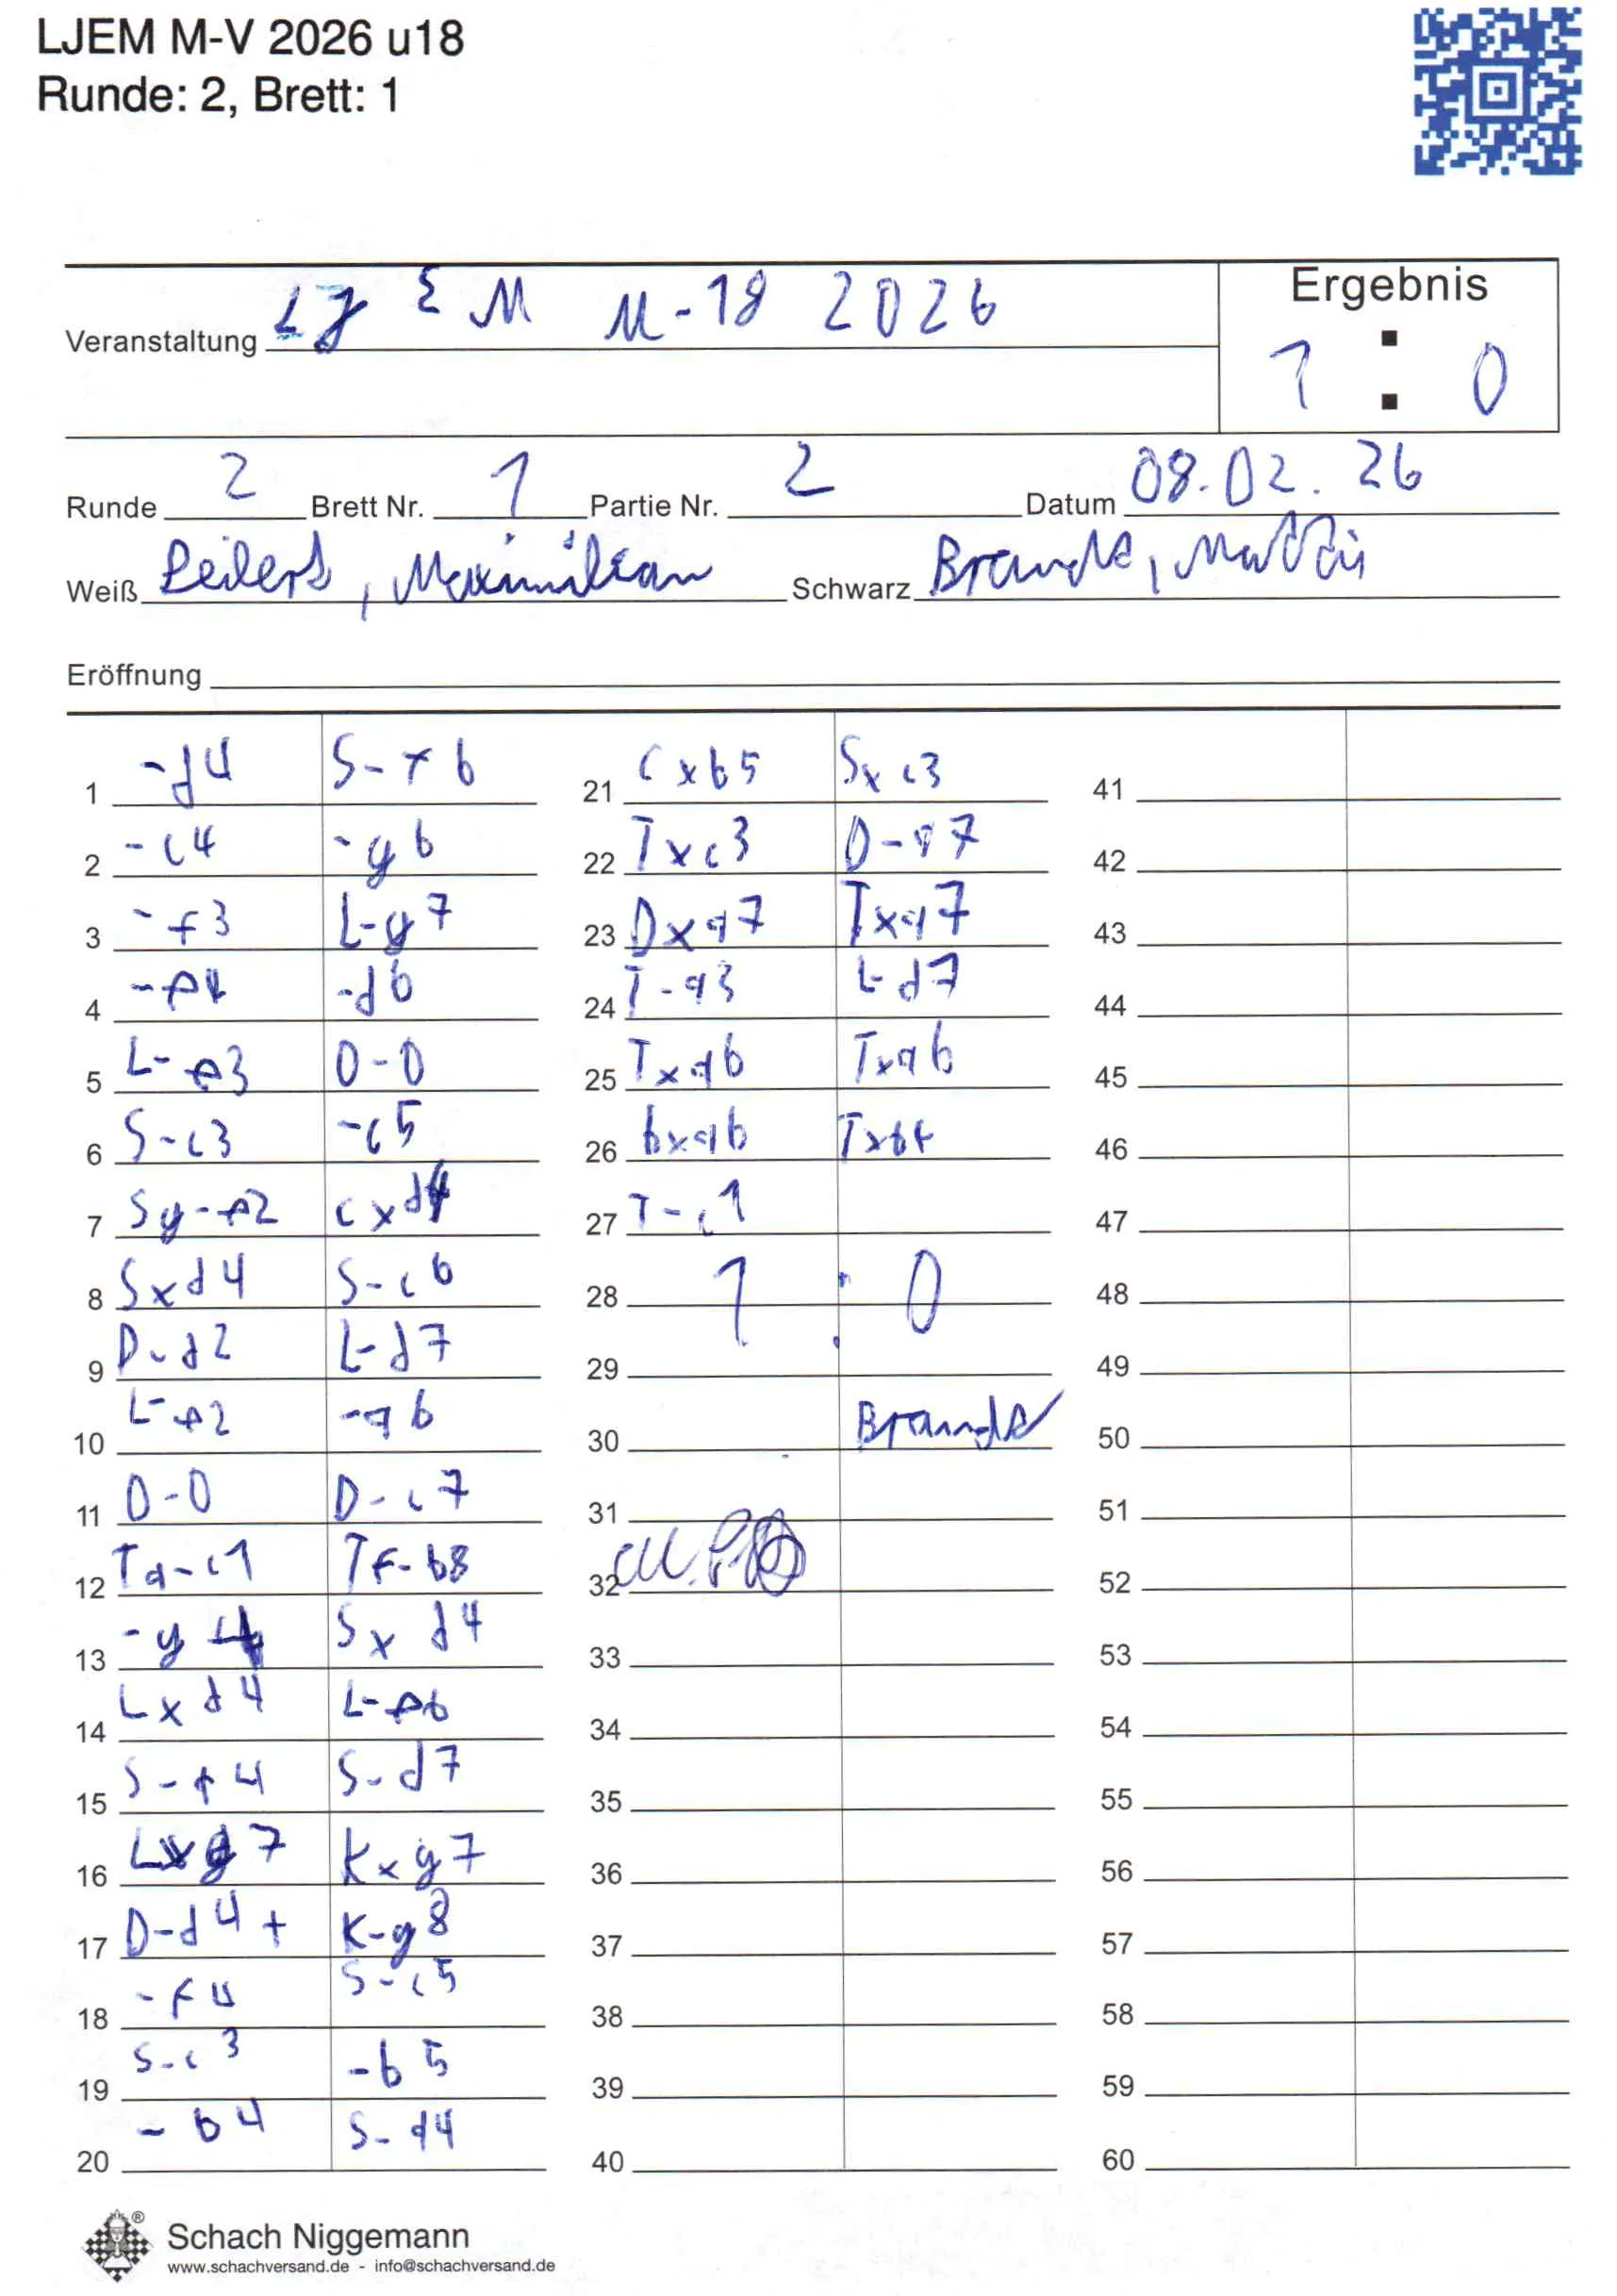 LJEM M-V 2026 u18
Runde: 2, Brett: 1
Veranstaltung LJEM U-18 2026
Ergebnis
1 : 0
Runde 2 Brett Nr. 1 Partie Nr. 2 Datum 08.02.26
Weiß Peilert, Maximilian Schwarz Brandt, Mattis
Eröffnung
1 -d4 S-f6
2 -c4 -g6
3 -f3 L-g7
4 -e4 -d6
5 L-e3 0-0
6 S-c3 -c5
7 Sg-e2 cxd4
8 Sxd4 S-c6
9 D-d2 L-d7
10 L-e2 -a6
11 0-0 D-c7
12 Ta-c1 Tf-b8
13 -g4 Sxd4
14 Lxd4 L-e6
15 S-d4 S-d7
16 Lxg7 Kxg7
17 D-d4+ K-g8
18 -f4 S-c5
19 S-c3 -b5
20 -b4 S-a4
21 cxb5 Sxc3
22 Txc3 D-a7
23 Dxa7 Txa7
24 T-a3 L-d7
25 Txa6 Txa6
26 bxa6 Txb4
27 T-c1
28 1 : 0
29
30 Brandt
31
32
33
34
35
36
37
38
39
40
41
42
43
44
45
46
47
48
49
50
51
52
53
54
55
56
57
58
59
60
Schach Niggemann
www.schachversand.de - info@schachversand.de